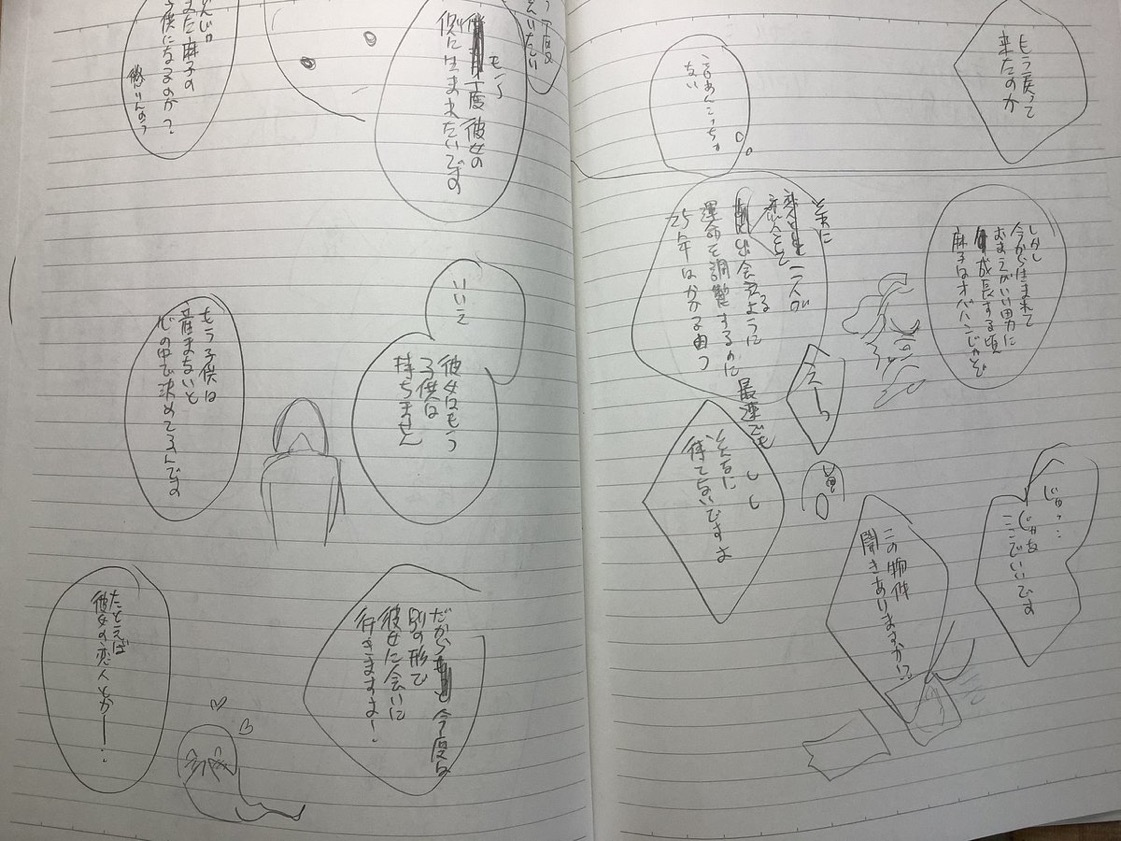 もう戻って
来たのか
ない
しかし
今から生まれて
おまえがいい男に
成長する頃
麻子はオバハンじゃぞ
二人が
出会えるように
運命を調整するのに
最速でも
25年はかかる由つ
えーっ
そんなに
待てないですよ
じゃっ…
じゃあ
ここでいいです
この物件
聞きありますか!?
もう
一度 彼女の
供にはまれたいです
また麻子の
子供になるのか?
いいえ
彼女はもう
子供は
持ちません
もう子供は
産まないと
心の中で決めてるんです
だから 今度は
別の形で
彼女に会いに
行きますよ!
たとえば
彼女の恋人とかー…